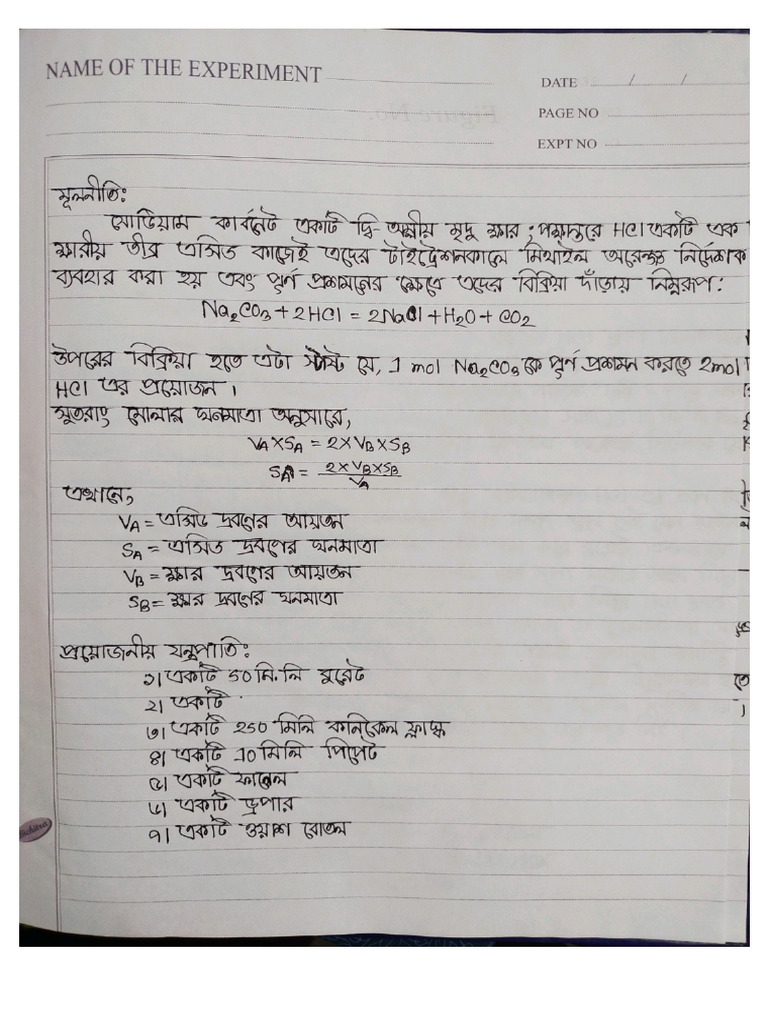 NAME OF THE EXPERIMENT
DATE / /
PAGE NO
EXPT NO
মূলনীতিঃ
সোডিয়াম কার্বনেট একটি দ্বি-অম্লীয় মৃদু ক্ষার; পক্ষান্তরে HCl একটি এক
ক্ষারীয় তীব্র এসিড কাজেই এদের টাইট্রেশনকালে মিথাইল অরেঞ্জ নির্দেশক
ব্যবহার করা হয় এবং পূর্ণ প্রশমনের ক্ষেত্রে এদের বিক্রিয়া দাঁড়ায় নিম্নরূপ:
Na₂CO₃ + 2HCl = 2NaCl + H₂O + CO₂
উপরের বিক্রিয়া হতে এটা স্পষ্ট যে, 1 mol Na₂CO₃ কে পূর্ণ প্রশমন করতে 2mol
HCl এর প্রয়োজন।
সুতরাং মোলার ঘনমাত্রা অনুসারে,
V_A × S_A = 2 × V_B × S_B
S_A = 2 × V_B × S_B / V_A
এখানে,
V_A = এসিড দ্রবণের আয়তন
S_A = এসিড দ্রবণের ঘনমাত্রা
V_B = ক্ষার দ্রবণের আয়তন
S_B = ক্ষার দ্রবণের ঘনমাত্রা
প্রয়োজনীয় যন্ত্রপাতি:
১। একটি 50 মি.লি ব্যুরেট
২। একটি
৩। একটি 250 মিলি কনিকেল ফ্লাস্ক
৪। একটি 10 মিলি পিপেট
৫। একটি ফানেল
৬। একটি ড্রপার
৭। একটি ওয়াশ বোতল